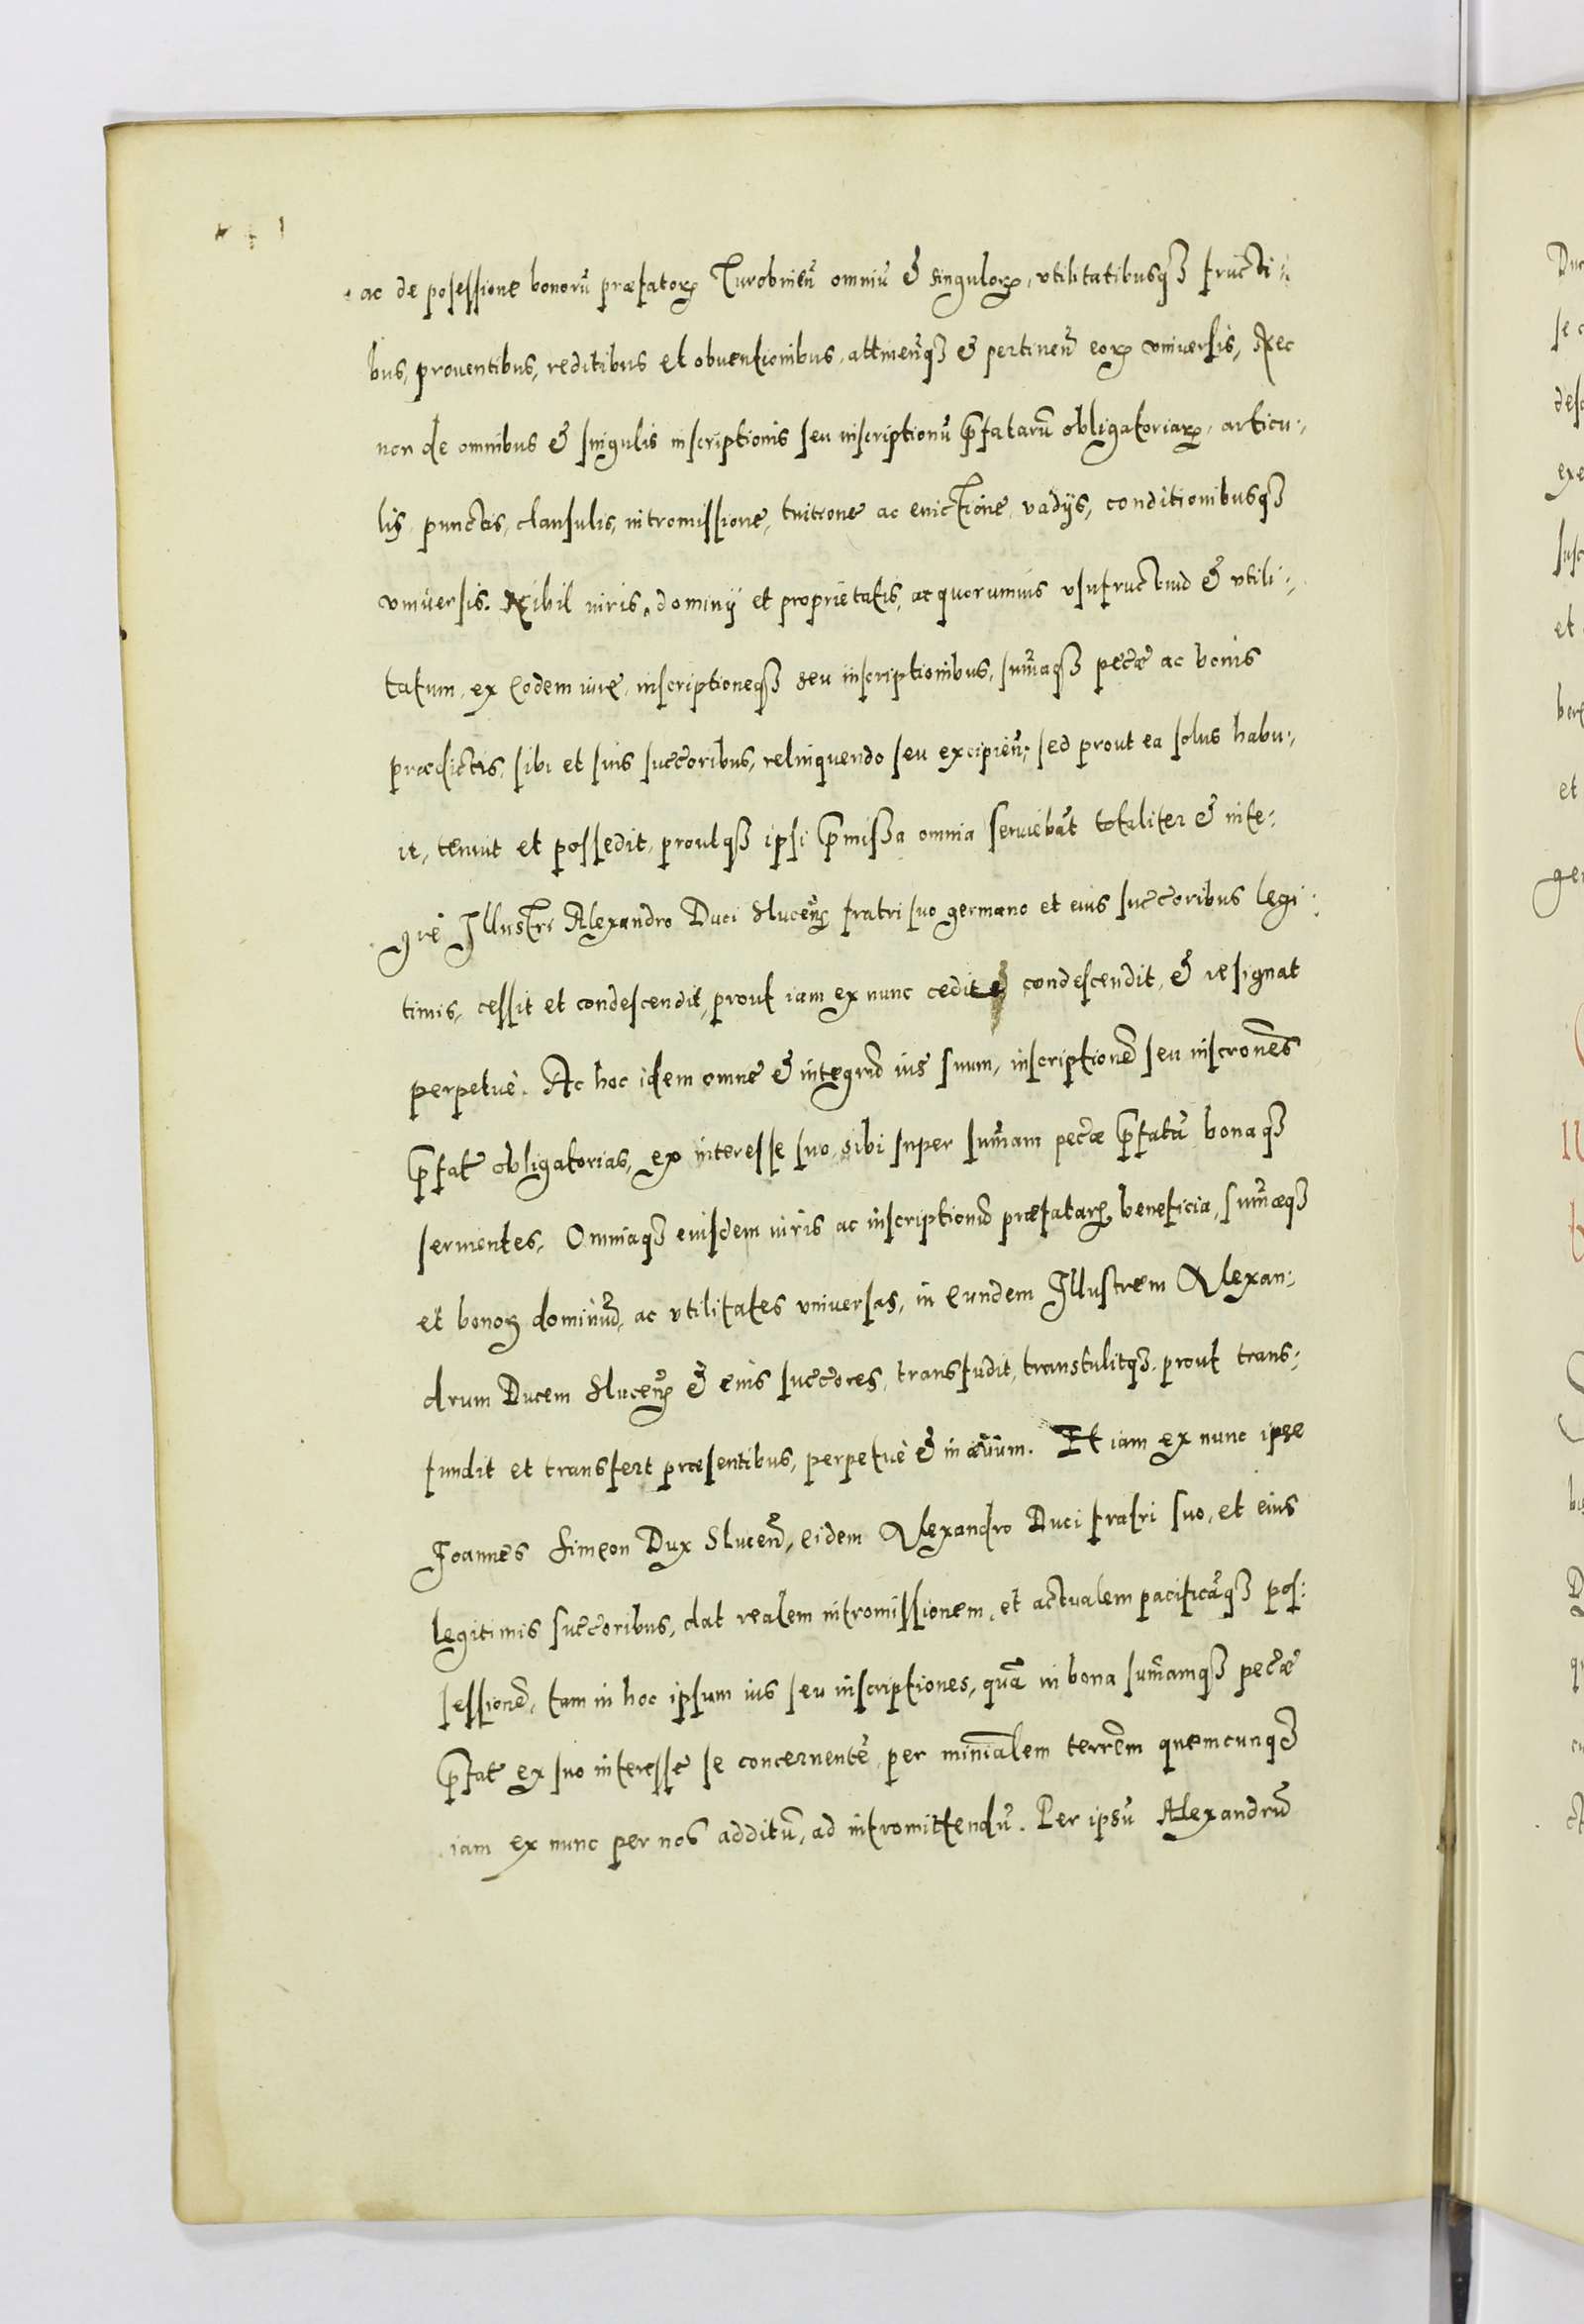 ac de posessione bonorū præfatorꝝ Turobinen̄ omniū & singulorꝝ, vtilitatibusqꝫ fructi-
bus, prouentibus, reditibus et obuentionibus, attinen̄qꝫ & pertinen̄ eorꝝ vniuersis, Nec
non de omnibus & singulis inscriptionis seu inscriptionū p̄fatarū obligatoriarꝝ, articu-
lis, punctis, clausulis, intromissione, tuitione ac euictione, vadijs, conditionibusqꝫ
vniuersis. Nihil iuris, dominij et proprietatis, ac quorumuis vsufructuū & vtili-
tatum, ex eodem iure, inscriptioneqꝫ seu inscriptionibus, sum̄aqꝫ pec̄æ ac bonis
prædictis, sibi et suis succ̄oribus, relinquendo seu excipien̄: sed prout ea solus habu-
it, tenuit et possedit, proutqꝫ ipsi p̄missa omnia seruiebāt totaliter & inte-
grè Illustri Alexandro Duci Slucen̄ fratri suo germano et eius succ̄oribus legi-
timis, cessit et condescendit, prout iam ex nunc cedit & condescendit, & resignat
perpetuè. Ac hoc idem omne & integrū ius suum, inscriptionē seu inscrōnes
p̄fat̄ obligatorias, ex interesse suo, sibi super sum̄am pec̄æ p̄fatā bonaqꝫ
seruientes, Omniaqꝫ eiusdem iuris ac inscriptionū præfatarꝝ beneficia, sum̄æqꝫ
et bonoꝝ dominiū, ac vtilitates vniuersas, in eundem Illustrem Alexan-
drum Ducem Slucen̄ & eius succ̄ores, transfudit, transtulitqꝫ prout trans-
fundit et transfert præsentibus, perpetuè & in æuum. Et iam ex nunc ipse
Joannes Simeon Dux Slucen̄, eidem Alexandro Duci fratri suo, et eius
legitimis succ̄oribus, dat realem intromissionem, et actualem pacificāqꝫ pos-
sessionē, tam in hoc ipsum ius seu inscriptiones, quā in bona sum̄amqꝫ pec̄æ
p̄fat̄ ex suo interesse se concernentē, per minīalem terrēm quemcunqꝫ
iam ex nunc per nos additū, ad intromittendū. Per ipsū Alexandrū